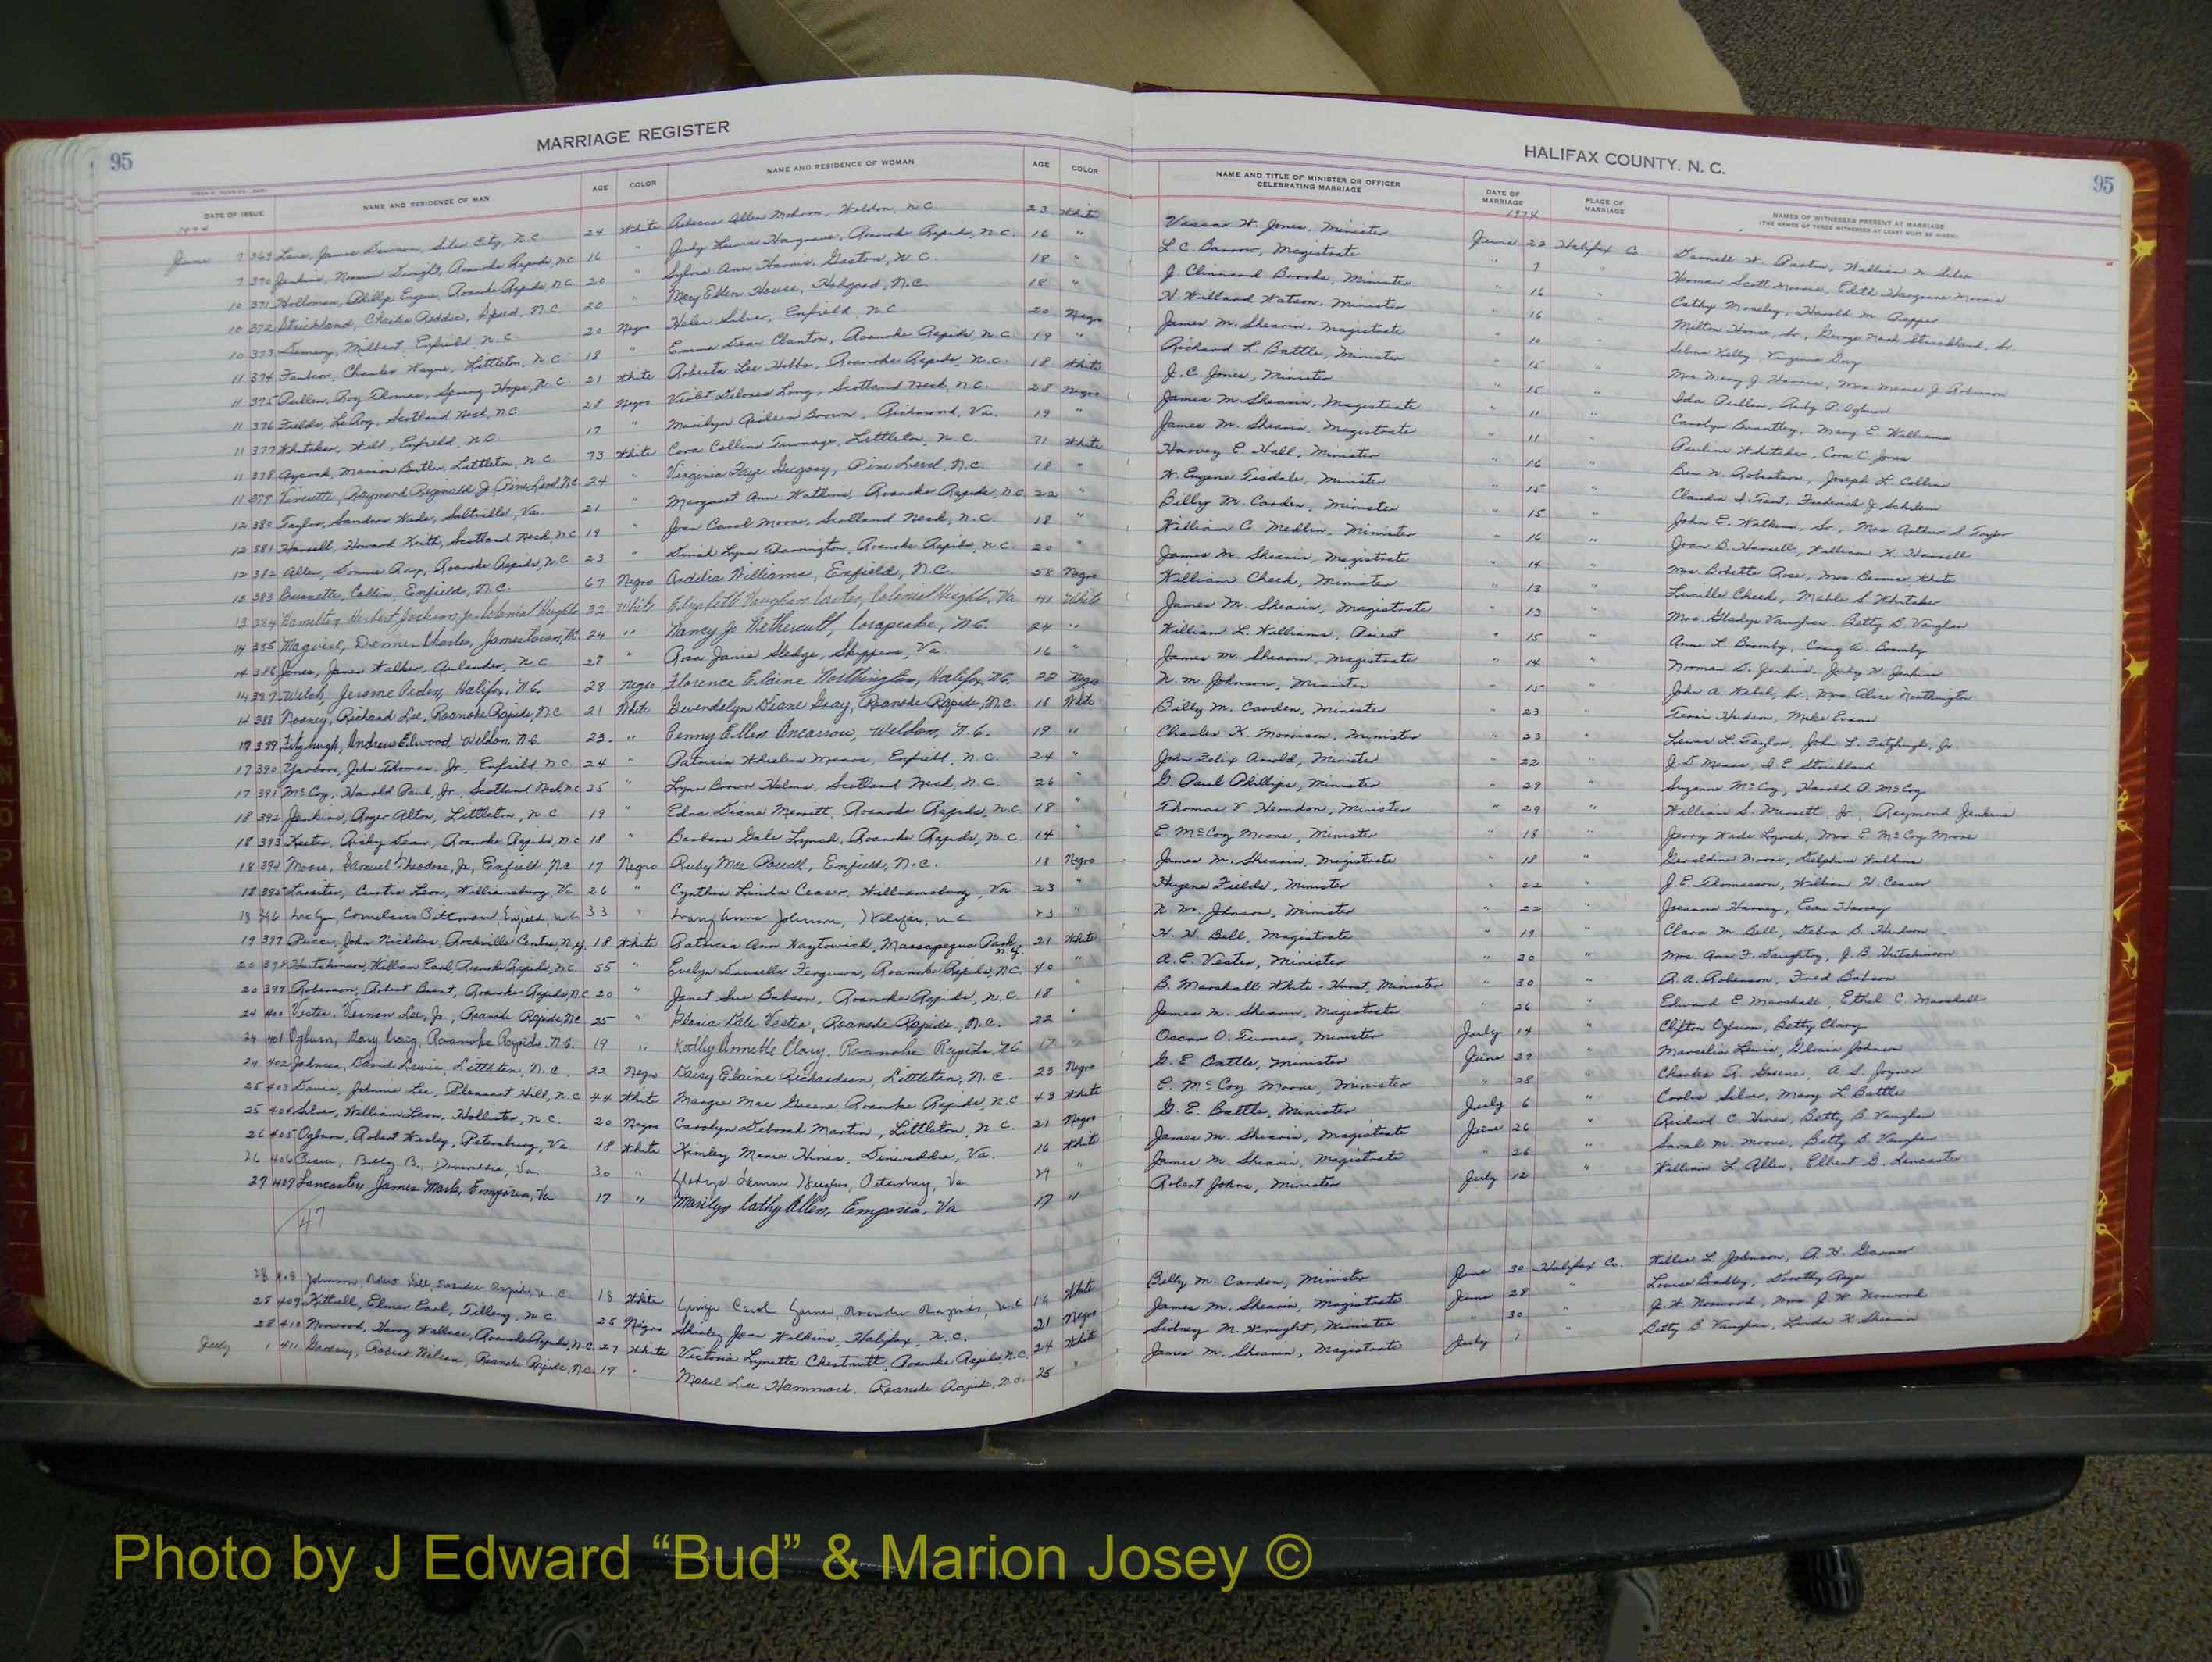 95
MARRIAGE REGISTER
DATE OF ISSUE NAME AND RESIDENCE OF MAN AGE COLOR NAME AND RESIDENCE OF WOMAN AGE COLOR
1974
June 7 369 Lane, James Dawson, Siler City, N.C. 24 White Rebecca Allen Mohorn, Weldon, N.C. 23 White
7 370 Jenkins, Norman Dwight, Roanoke Rapids, N.C. 16 " Judy Lewis Hargrave, Roanoke Rapids, N.C. 16 "
10 371 Holloman, Phillip Eugene, Roanoke Rapids, N.C. 20 " Sylvia Ann Harris, Gaston, N.C. 18 "
10 372 Strickland, Charles Reddie, Speed, N.C. 20 " Mary Ellen House, Hobgood, N.C. 18 "
10 373 Demery, Milbert, Enfield, N.C. 20 Negro Helen Silver, Enfield, N.C. 20 Negro
11 374 Faulcon, Charles Wayne, Littleton, N.C. 18 " Emma Dean Clanton, Roanoke Rapids, N.C. 19 "
11 375 Pullen, Roy Thomas, Spring Hope, N.C. 21 White Roberta Lee Hobbs, Roanoke Rapids, N.C. 18 White
11 376 Fields, LeRoy, Scotland Neck, N.C. 28 Negro Violet Delores Long, Scotland Neck, N.C. 28 Negro
11 377 Whitaker, Will, Enfield, N.C. 17 " Marilyn Aileen Brown, Richmond, Va. 19 "
11 378 Aycock, Marion Butler, Littleton, N.C. 73 White Cora Collins Turnage, Littleton, N.C. 71 White
11 379 Vinsette, Raymond Reginald Jr, Pine Level, N.C. 24 " Virginia Faye Gregory, Pine Level, N.C. 18 "
12 380 Taylor, Sanders Wade, Saltville, Va. 21 " Margaret Ann Watkins, Roanoke Rapids, N.C. 22 "
12 381 Harrell, Howard Keith, Scotland Neck, N.C. 19 " Joan Carol Moore, Scotland Neck, N.C. 18 "
12 382 Allen, Donnie Ray, Roanoke Rapids, N.C. 23 " Dinah Lynn Tharrington, Roanoke Rapids, N.C. 20 "
12 383 Burnette, Collin, Enfield, N.C. 67 Negro Ardelia Williams, Enfield, N.C. 58 Negro
13 384 Hamilton, Herbert Jackson Jr, Colonial Heights 32 White Elizabeth Vaughan, Colonial Heights, Va 41 White
14 385 Dennis Charles, Jamestown, 24 " Nancy Jo Nethercutt, Corapeake, N.C. 24 "
14 386 Jones, James Walker, Aulander, N.C. 27 " Rosa Janie Sledge, Skippers, Va 16 "
14 387 Welch, Jerome Peden, Halifax, N.C. 28 Negro Florence Elaine Northington, Halifax, N.C. 22 Negro
14 388 Mooney, Richard Lee, Roanoke Rapids, N.C. 21 White Gwendolyn Diane Gray, Roanoke Rapids, N.C. 18 White
17 389 Fitzhugh, Andrew Elwood, Weldon, N.C. 23 " Penny Ellen Oncarrow, Weldon, N.C. 19 "
17 390 John Thomas, Jr, Enfield, N.C. 24 " Patricia Wheeler Mears, Enfield, N.C. 24 "
17 391 McCoy, Harold Paul, Jr., Scotland Neck, N.C. 25 " Lynn Brown Helms, Scotland Neck, N.C. 26 "
18 392 Jenkins, Roger Alton, Littleton, N.C. 19 " Edna Diane Merritt, Roanoke Rapids, N.C. 18 "
18 393 Keeter, Ricky Dean, Roanoke Rapids, N.C. 18 " Barbara Gale Lynch, Roanoke Rapids, N.C. 14 "
18 394 Moore, Samuel Theodore, Jr, Enfield, N.C. 17 Negro Ruby Mae Powell, Enfield, N.C. 18 Negro
18 395 Lassiter, Curtis Leon, Williamsburg, Va 26 " Cynthia Linda Ceaser, Williamsburg, Va 23 "
18 396 Cornelious Pittman, Enfield, N.C. 33 " Anne Johnson, Halifax, N.C. 23 "
19 397 Pucci, John Nicholas, Rockville Centre, N.Y. 18 White Patricia Ann Haytowich, Massapequa Park, N.Y. 21 White
20 398 Hutchinson, William Earl, Roanoke Rapids, N.C. 55 " Evelyn Louvella Ferguson, Roanoke Rapids, N.C. 40 "
20 399 Roberson, Robert Brent, Roanoke Rapids, N.C. 20 " Janet Sue Babson, Roanoke Rapids, N.C. 18 "
24 400 Vester, Vernon Lee, Jr., Roanoke Rapids, N.C. 25 " Gloria Dale Vester, Roanoke Rapids, N.C. 22 "
24 401 Ogburn, Gary Craig, Roanoke Rapids, N.C. 19 " Kathy Annette Clary, Roanoke Rapids, N.C. 17 "
24 402 Johnson, David Lewis, Littleton, N.C. 22 Negro Daisy Elaine Richardson, Littleton, N.C. 23 Negro
25 403 Davis, Johnnie Lee, Pleasant Hill, N.C. 44 White Margie Mae Greene, Roanoke Rapids, N.C. 43 White
25 404 Silver, William Leon, Hollister, N.C. 20 Negro Carolyn Deborah Martin, Littleton, N.C. 21 Negro
26 405 Ogburn, Robert Wesley, Petersburg, Va 18 White Kimley Marie Hines, Dinwiddie, Va. 16 White
26 406 Billy B., Dinwiddie, Va. 30 " Gladys Hughes, Petersburg, Va 29 "
27 407 Lancaster, James Mark, Emporia, Va 17 " Marilyn Cathy Allen, Emporia, Va 17 "
47
28 408 Johnson, Robert Roanoke Rapids, N.C. 18 White Ginger Carol Garner, Roanoke Rapids, N.C. 16 White
28 409 Kittrell, Elmer Earl, Tillery, N.C. 25 Negro Shirley Jean Watkins, Halifax, N.C. 21 Negro
28 410 Norwood, Harry Wallace, Roanoke Rapids, N.C. 27 White Victoria Lynette Chestnutt, Roanoke Rapids, N.C. 24 White
July 1 411 Robert Nelson, Roanoke Rapids, N.C. 19 " Lee Hammack, Roanoke Rapids, N.C. 25 "
HALIFAX COUNTY, N. C.
95
NAME AND TITLE OF MINISTER OR OFFICER CELEBRATING MARRIAGE DATE OF MARRIAGE PLACE OF MARRIAGE NAMES OF WITNESSES PRESENT AT MARRIAGE
(THE NAMES OF THREE WITNESSES AT LEAST MUST BE GIVEN)
1974
Vassar W. Jones, Minister June 22 Halifax Co. Darnell W. William N.
L. C. Barrow, Magistrate " 7 " Herman Scott Moore, Edith Hargrave Morris
J. Clinnard Brooks, Minister " 16 " Cathy Moseley, Harold M. Pepper
H. Willard Watson, Minister " 16 " Milton House, Sr., George Nash Strickland, Sr.
James M. Shearin, Magistrate " 10 " Selma Kelly, Virginia Gay
Richard L. Battle, Minister " 15 " Mrs Mary J. Harris, Mrs J. Robinson
J. C. Jones, Minister " 15 " Ida Pullen, Ruby P. Ogburn
James M. Shearin, Magistrate " 11 " Carolyn Brantley, Mary E. Williams
James M. Shearin, Magistrate " 11 " Pauline Whitaker, Cora C. Jones
Harvey E. Hall, Minister " 16 " Ben N. Robertson, Joseph L. Collins
W. Eugene Tisdale, Minister " 15 " Claudia D. Frederick J.
Billy M. Carden, Minister " 15 " John E. Watkins, Sr., Mrs Arthur S Taylor
William C. Medlin, Minister " 16 " Joan B. Harrell, William K. Harrell
James M. Shearin, Magistrate " 14 " Mrs. Bobette Rose, Mrs. Bernice White
William Cheek, Minister " 13 " Lucille Cheek, Mable S. Whitaker
James M. Shearin, Magistrate " 13 " Mrs. Gladys Vaughan, Betty B. Vaughan
William L. Williams, Priest " 15 " Anne L. Bromby, Craig A. Bromby
James M. Shearin, Magistrate " 14 " Norman D. Jenkins, Judy H. Jenkins
N. M. Johnson, Minister " 15 " John A. Welch, Sr., Mrs. Alice Northington
Billy M. Carden, Minister " 23 " Terri Hudson, Mike Evans
Charles K. Morrison, Minister " 23 " Lewis L. Taylor, John L. Fitzhugh, Jr
John Felix Arnold, Minister " 22 " J. D. Mears, D. E. Strickland
G. Paul Phillips, Minister " 29 " Suzanne McCoy, Harold P. McCoy
Thomas V. Herndon, Minister " 29 " William S. Merritt, Jr., Raymond Jenkins
E. McCoy Moore, Minister " 18 " Jerry Wade Lynch, Mrs. E. McCoy Moore
James M. Shearin, Magistrate " 18 " Geraldine Moore, Delphine Wilkins
Hugene Fields, Minister " 22 " J. E. Thomasson, William H. Ceaser
N. M. Johnson, Minister " 22 " Joeann Harvey, Harvey
H. H. Bell, Magistrate " 19 " Clara M. Bell, Debra B. Hudson
A. E. Vester, Minister " 20 " Mrs. Ann F. Daughtry, J. B. Hutchinson
B. Marshall White-Hurst, Minister " 30 " R. A. Roberson, Fred Babson
James M. Shearin, Magistrate " 26 " Edward E. Marshall, Ethel C. Marshall
Oscar O. Turner, Minister July 14 " Clifton Ogburn, Betty Clary
G. E. Battle, Minister June 29 " Marcelia Lewis, Gloria Johnson
E. McCoy Moore, Minister " 28 " Charles R. Greene, A. S. Joyner
G. E. Battle, Minister July 6 " Silver, Mary L. Battle
James M. Shearin, Magistrate June 26 " Richard C. Hines, Betty B. Vaughan
James M. Shearin, Magistrate " 26 " Sarah M. Moore, Betty B. Vaughan
Robert Johns, Minister July 12 " William L. Allen, Elbert G. Lancaster
Billy M. Carden, Minister June 30 Halifax Co. Willie L. Johnson, R. H. Garner
James M. Shearin, Magistrate June 28 " Louise Bradley, Dorothy
Sidney M. Wright, Minister " 30 " J. W. Norwood, Mrs. J. W. Norwood
James M. Shearin, Magistrate July 1 " Betty B. Vaughan, Linda K. Shearin
Photo by J Edward “Bud” & Marion Josey ©